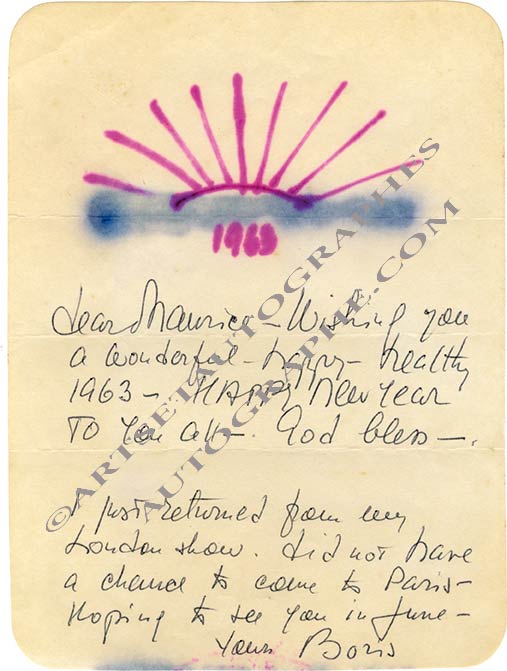 1963
Dear Maurice - Wishing you
a wonderful - happy - healthy
1963 - HAPPY New Year
To you all - God bless -
I just returned from my
London show. Did not have
a chance to come to Paris -
Hoping to see you in June -
Yours Boris
© ARTS ET AUTOGRAPHES
AUTOGRAPHE.COM